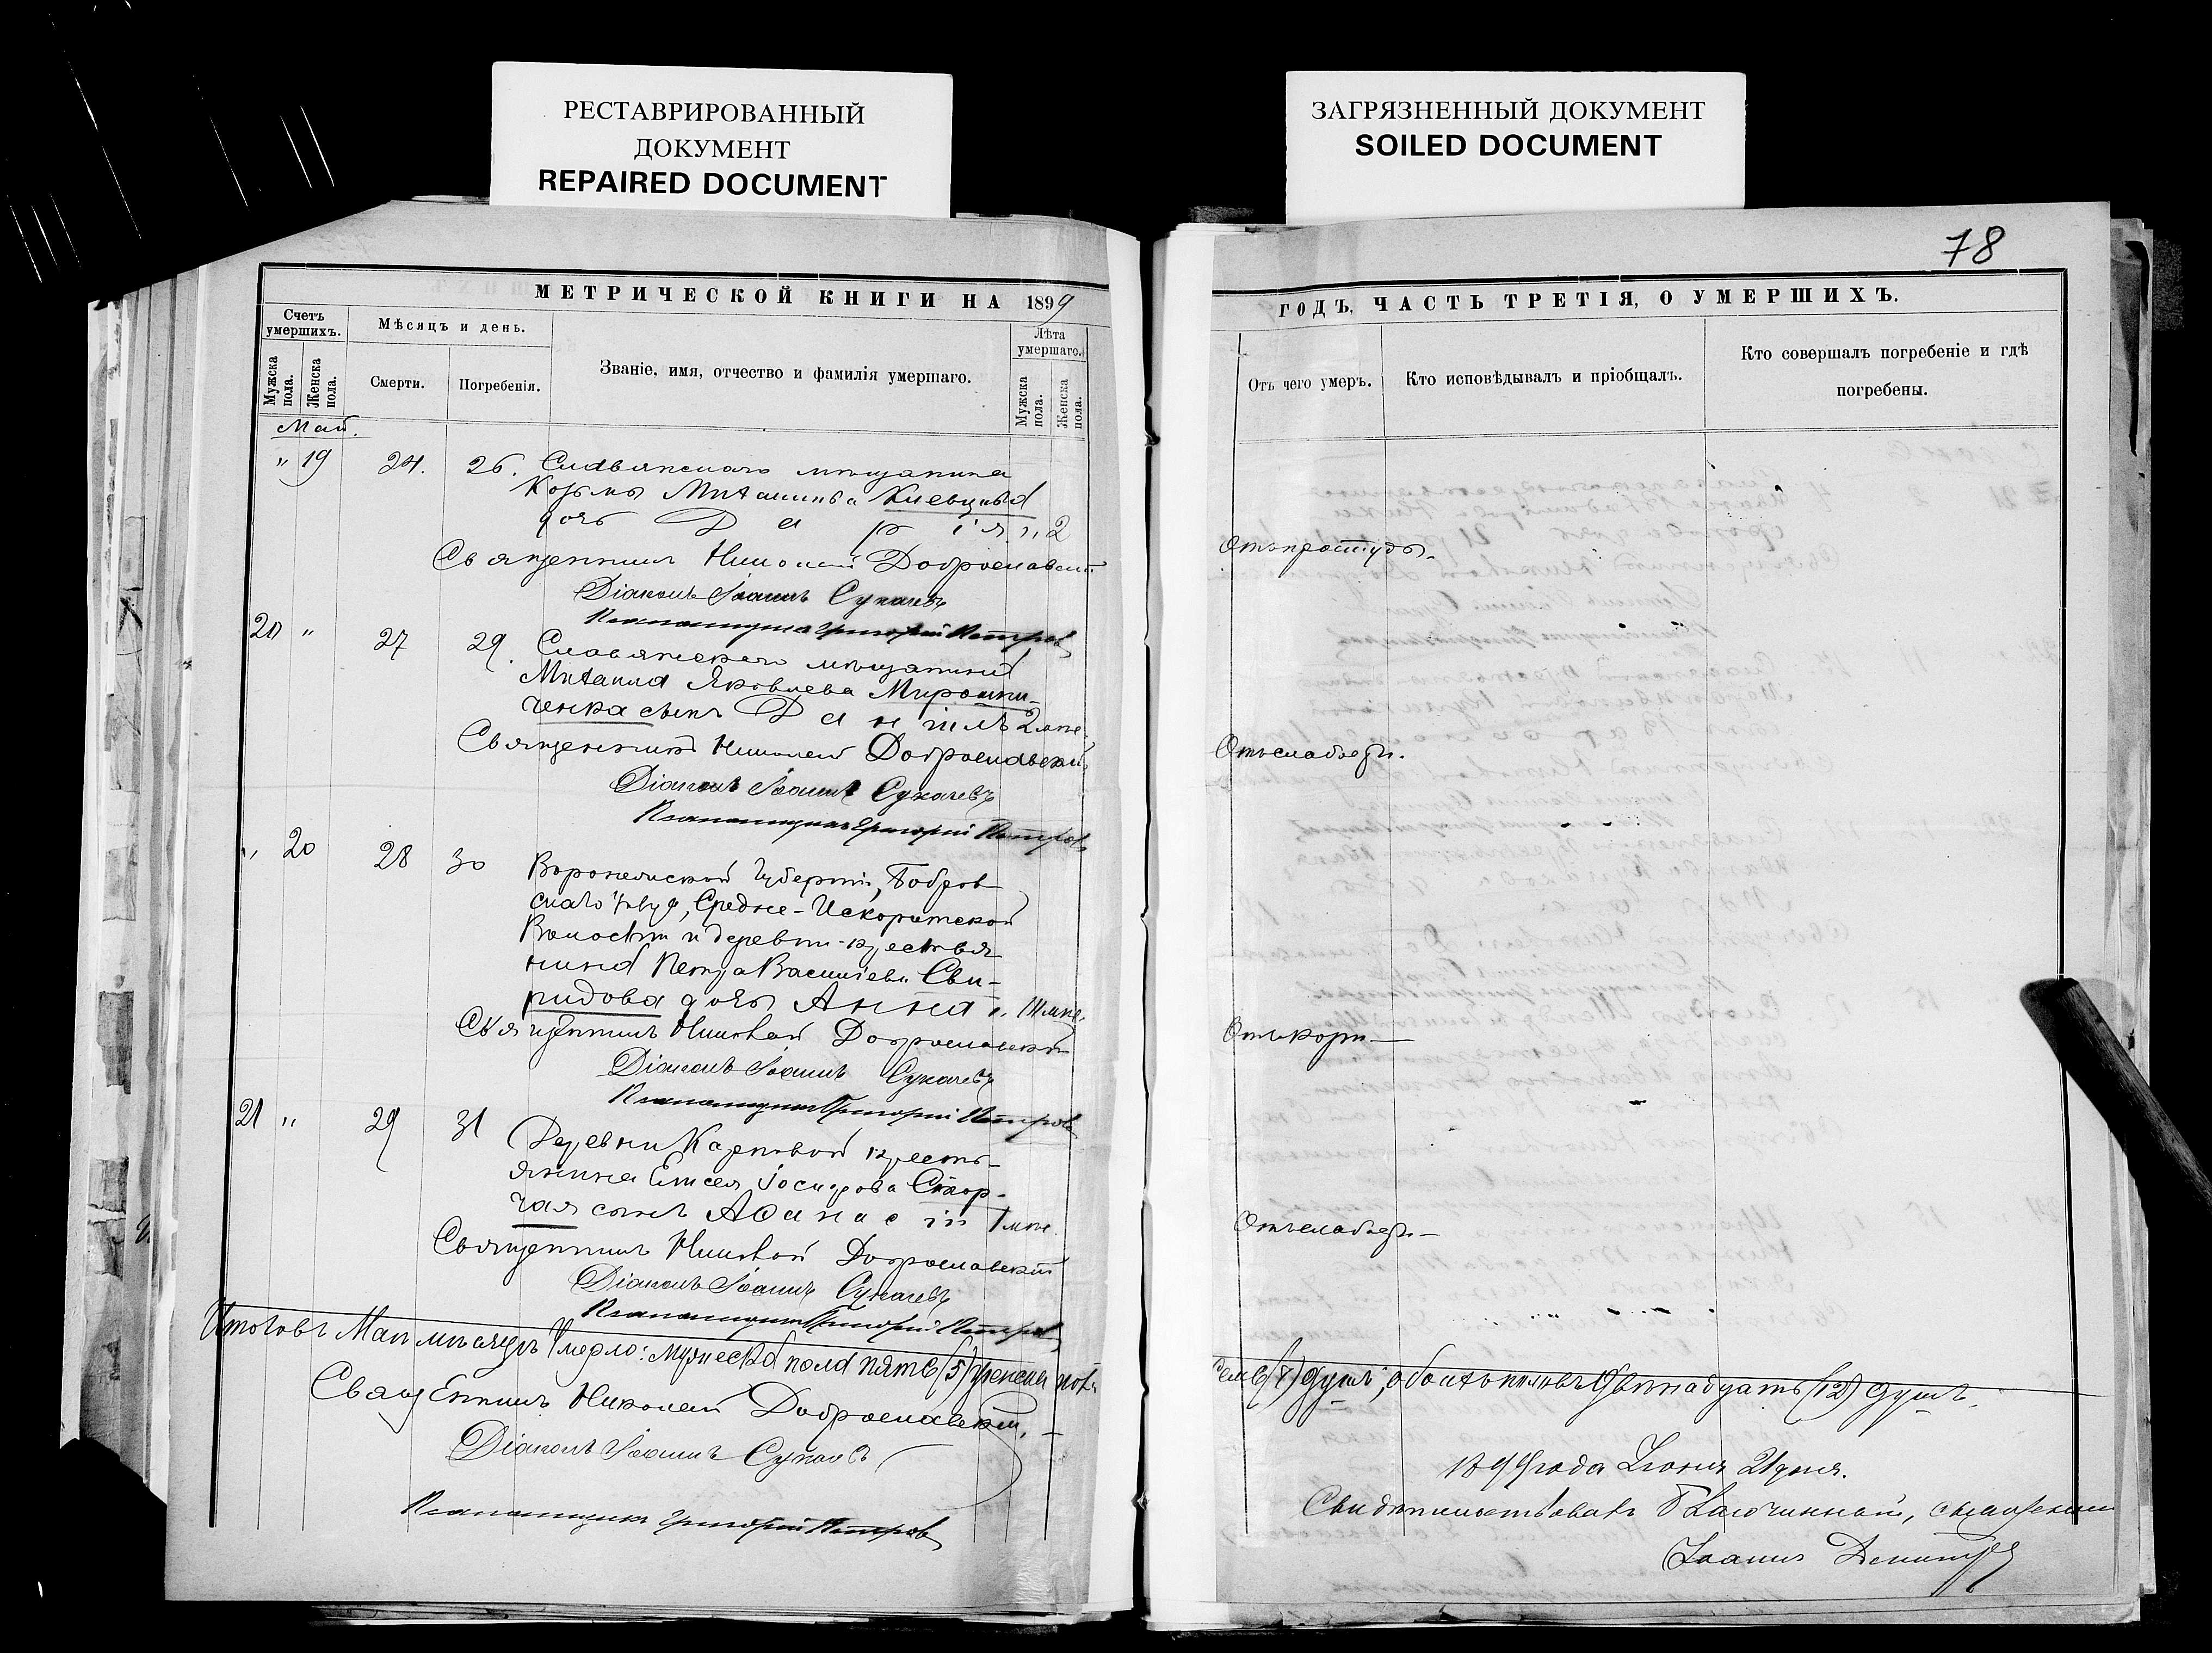 РЕСТАВРИРОВАННЫЙ
ДОКУМЕНТ
REPAIRED DOCUMENT
ЗАГРЯЗНЕННЫЙ ДОКУМЕНТ
SOILED DOCUMENT
78
МЕТРИЧЕСКОЙ КНИГИ НА 1899
Счетъ умершихъ.
Мужска пола.
Женска пола.
Мѣсяцъ и день.
Смерти.
Погребенія.
Званіе, имя, отчество и фамилія умершаго.
Лѣта умершаго.
Мужска пола.
Женска пола.
Май.
" 19 24. 26. Славянскаго мѣщанина
Козьмы
дочь Дарія " 2
Священникъ Николай Доброславскій
Діаконъ Іоаннъ Сукачевъ
Псаломщикъ Григорій Петровъ
20 " 27 29. Славянскаго мѣщанина
Михаила Яковлева Мирошни-
ченка сынъ Даніилъ 2 мѣс.
Священникъ Николай Доброславскій
Діаконъ Іоаннъ Сукачевъ
Псаломщикъ Григорій Петровъ
" 20 28 30 Воронежской губерніи, Бобров
скаго уѣзда, Средне-Икорецкой
Волости и деревни крестья
нина Петра Васильева Сви-
ридова дочь Анна
Священникъ Николай Доброславскій
Діаконъ Іоаннъ Сукачевъ
Псаломщикъ Григорій Петровъ
21 " 29 31 Деревни Карповой кресть-
янина Елисея Іосифова Стор-
чая сынъ Аѳанасій 1 мѣс.
Священникъ Николай Доброславскій
Діаконъ Іоаннъ Сукачевъ
Псаломщикъ Григорій Петровъ
Итого въ Маѣ мѣсяцѣ умерло: мужеска пола пять (5) женска пола
Священникъ Николай Доброславскій.
Діаконъ Іоаннъ Сукачевъ
Псаломщикъ Григорій Петровъ
ГОДЪ, ЧАСТЬ ТРЕТІЯ, О УМЕРШИХЪ.
Отъ чего умеръ.
Кто исповѣдывалъ и пріобщалъ.
Кто совершалъ погребеніе и гдѣ погребены.
Отъ простуды.
Отъ слабости.
Отъ кори
Отъ слабости
семь (7) душъ; обоихъ половъ двѣнадцать (12) душъ.
1899 года Іюня 21 дня.
Свидѣтельствовалъ Благочинный, священникъ
Іоаннъ